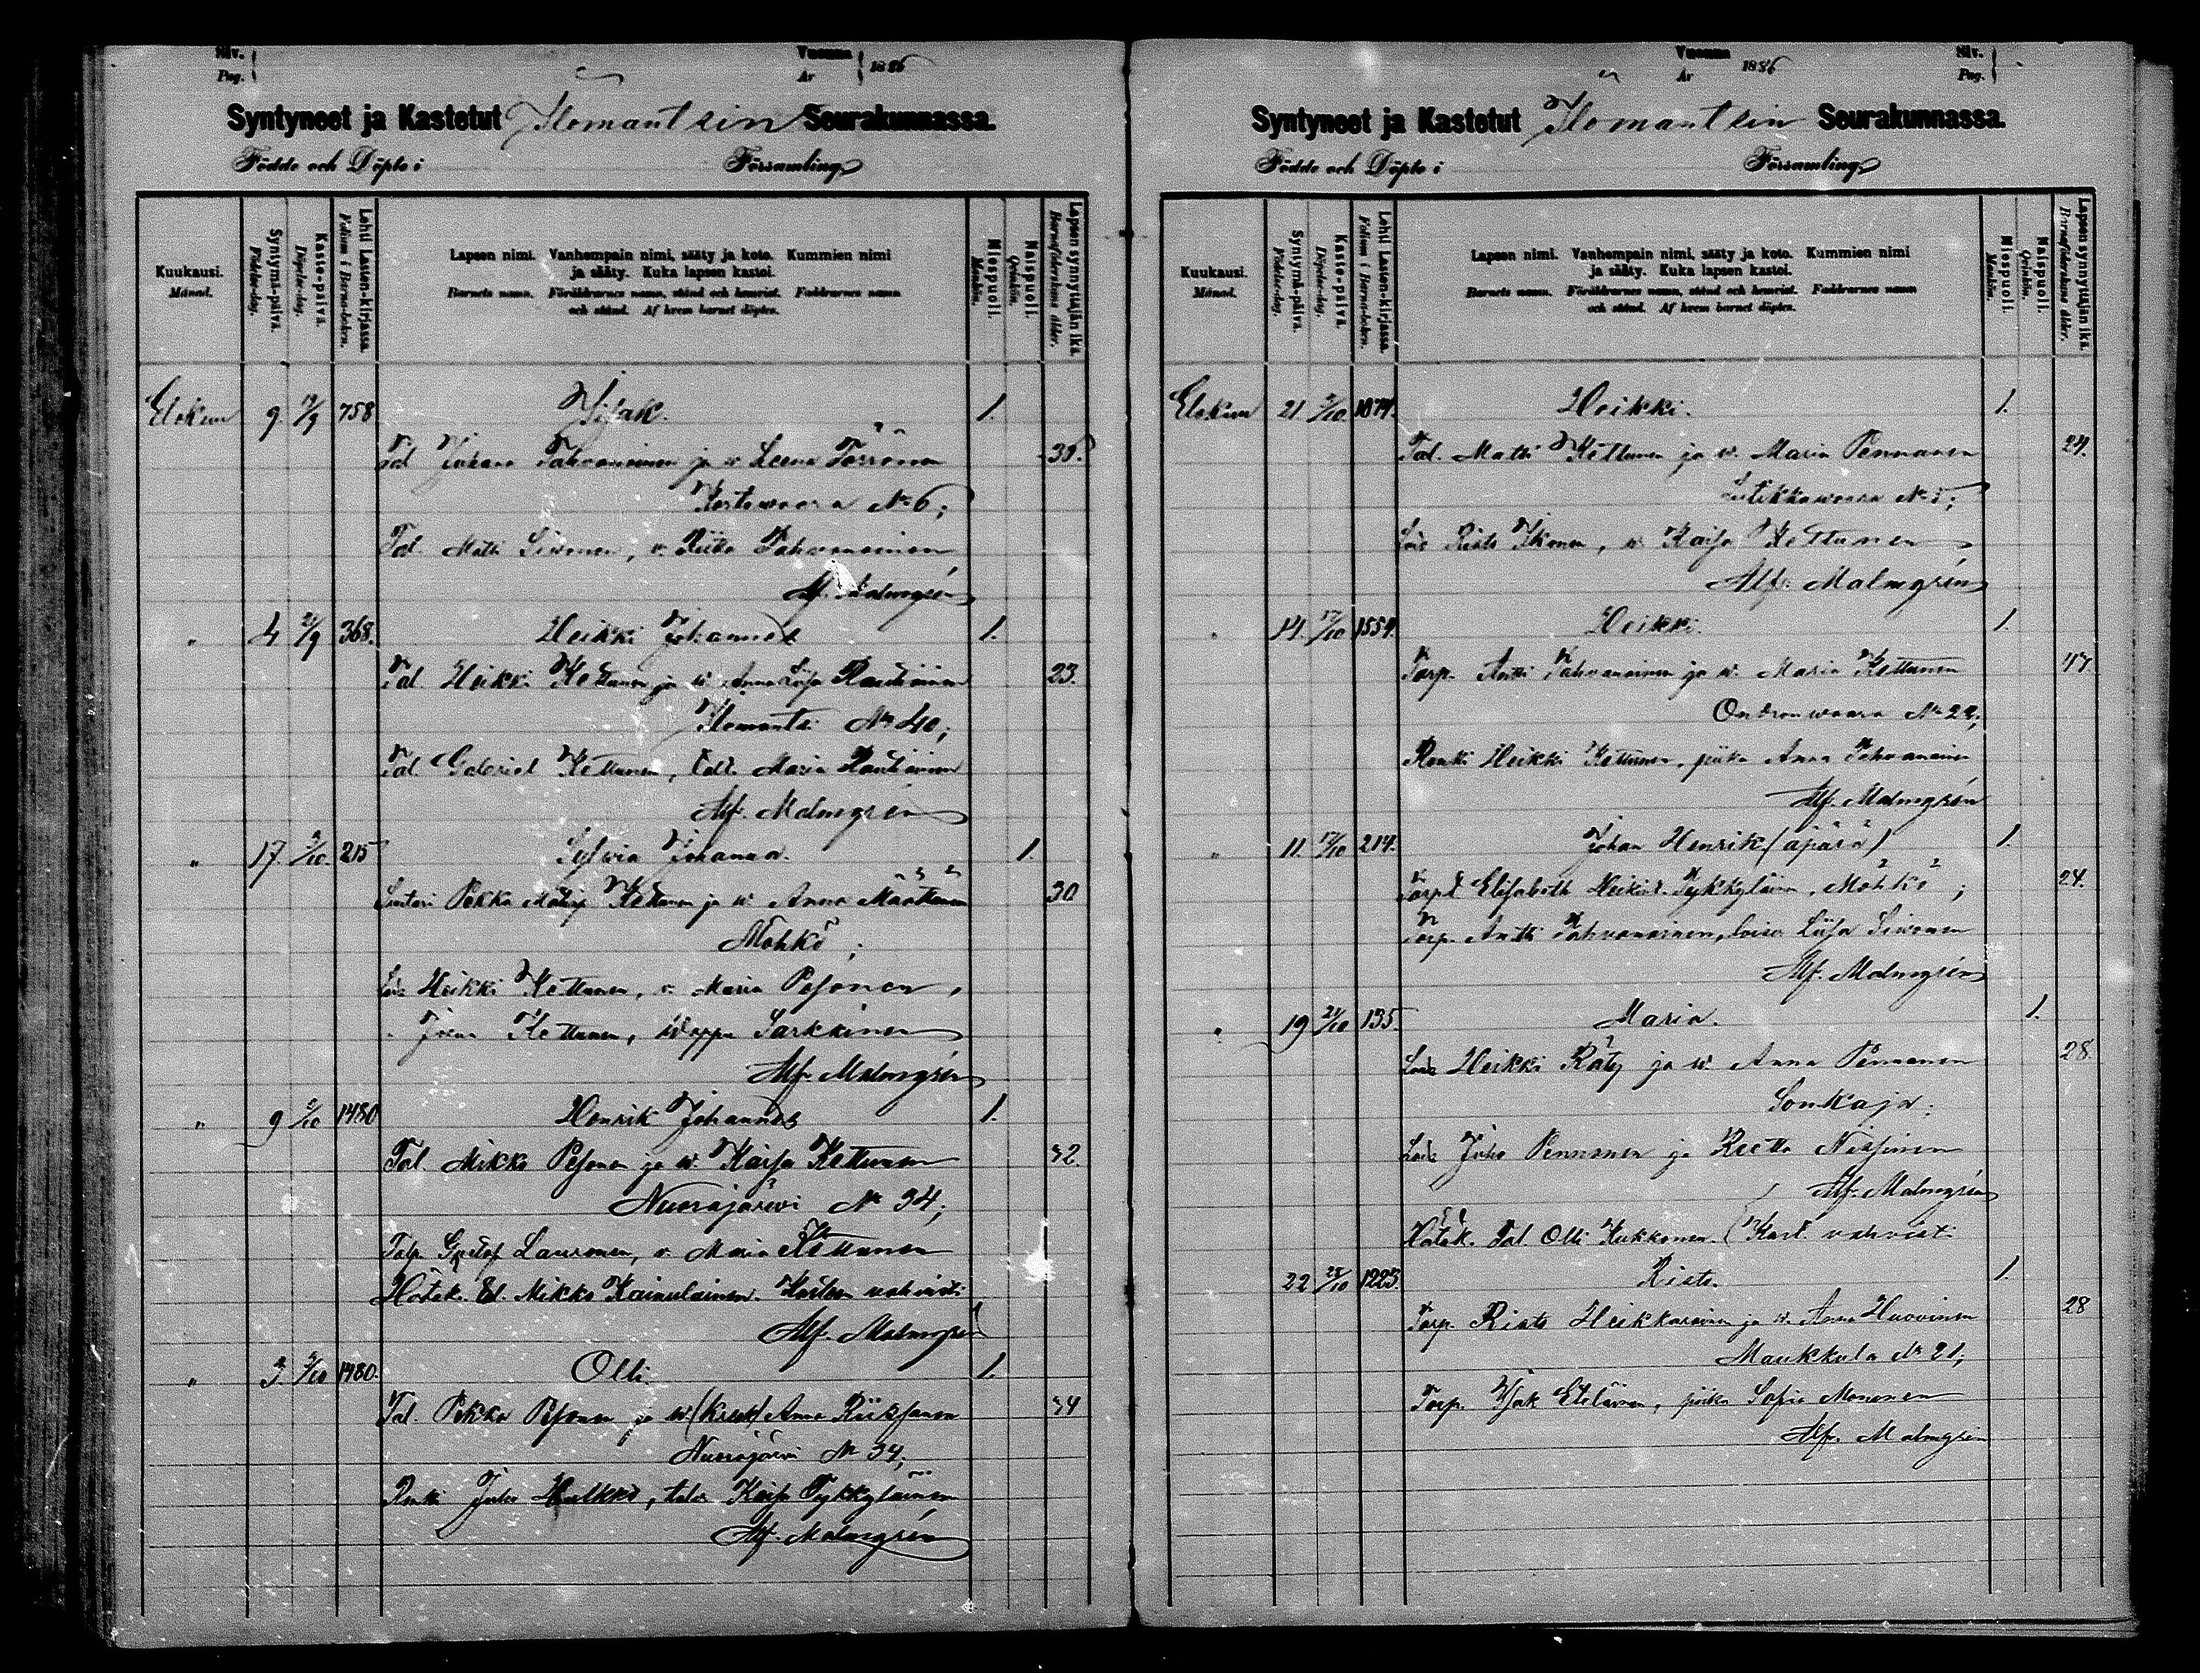 Siv.
Pag.
Vuonna
År
1886
Syntyneet ja Kastetut Ilomantsin Seurakunnassa.
Födde och Döpte i Församling
Kuukausi.
Månad.
Syntymä-päivä.
Födelse-dag.
Kaste-päivä.
Döpelse-dag.
Lehti Lasten-kirjassa.
Folium i Barna-boken.
Lapsen nimi. Vanhempain nimi, sääty ja koto. Kummien nimi
ja sääty. Kuka lapsen kastoi.
Barnets namn. Föräldrarnes namn, stånd och hemvist. Faddrarnes namn
och stånd. Af hvem barnet döptes.
Miespuoli.
Mankön.
Naispuoli.
Qvinkön.
Lapsen synnyttäjän ikä.
Barnaföderskans ålder.
Elokuu 9. 19/9 758 Isak. 1.
Tal Juhana Tahvanainen ja v. Leena Törrönen 38.
Kortewaara No 6;
Tal. Matti Siwonen, v. Riitta Tahvanainen
Alf. Malmgrén
" 4 26/9 368. Heikki Johannes 1.
Tal. Heikki Kettunen ja w. Anna Liisa Rautiainen 23.
Ilomantsi No 40;
Tal Gabriel Kettunen, tal. Maria Rautiainen
Alf. Malmgrén
" 17 2/10 215 Sylvia Johanna. 1.
Suutari Pekka Kettunen ja w. Anna Määttänen 30
Möhkö;
Lois Heikki Kettunen, v. Maria Pesonen,
" Kettunen, Wappu Sarkkinen
Alf. Malmgrén
" 9 2/10 1480 Henrik Johannes 1.
Tal. Mikko Pesonen ja w. Kaisa Kettunen 42.
Nuorajärwi No 34;
Talp. Gustaf Lauronen, v. Maria Kettunen
Hätäk. tal. Mikko Kainulainen. Kasteen vahvisti
Alf. Malmgrén
" 3. 3/10 1480. Olli. 1.
Tal. Pekka Pesonen ja w. Anna Riikonen 34
Nuorajärwi No 34;
Renki Juho Hulkko, tal. Kaisa Tykkyläinen
Alf. Malmgrén
Vuonna
År
1886
Siv.
Pag.
Syntyneet ja Kastetut Ilomantsin Seurakunnassa.
Födde och Döpte i Församling
Kuukausi.
Månad.
Syntymä-päivä.
Födelse-dag.
Kaste-päivä.
Döpelse-dag.
Lehti Lasten-kirjassa.
Folium i Barna-boken.
Lapsen nimi. Vanhempain nimi, sääty ja koto. Kummien nimi
ja sääty. Kuka lapsen kastoi.
Barnets namn. Föräldrarnes namn, stånd och hemvist. Faddrarnes namn
och stånd. Af hvem barnet döptes.
Miespuoli.
Mankön.
Naispuoli.
Qvinkön.
Lapsen synnyttäjän ikä.
Barnaföderskans ålder.
Elokuu 21. 3/10 1874. Heikki. 1.
Tal. Matti Kettunen ja w. Maria Pennanen 24.
Lutikkawaara No 5;
Lois Risto Ikonen, w. Kaisa Kettunen
Alf. Malmgrén
" 14. 17/10 1554. Heikki. 1.
Torp. Antti Tahvanainen ja w. Maria Kettunen 47
Ontronwaara No 22;
Renki Heikki Kettunen, piika Anna Tahvanainen
Alf. Malmgrén
" 11. 17/10 214. Johan Henrik (äpärä) 1.
Torpt Elisabeth Heikint. Tykkyläinen, Möhkö; 24.
Torp. Antti Tahvanainen, Liisa Siwonen
Alf. Malmgrén
" 19 24/10 135. Maria. 1.
Lois Heikki Räty ja w. Anna Pennanen 28.
Sonkaja;
Lois Juho Pennanen ja Reetta Nissinen
Alf. Malmgrén
Hätäk. Tal. Olli Kukkonen. (Kast. vahvisti
22 28/10 1223. Risto. 1.
Torp. Risto Heikkarainen ja w. Anna Huovinen 28
Maukkula No 21;
Torp. Isak Eteläinen, piika Sofia Mononen
Alf. Malmgrén